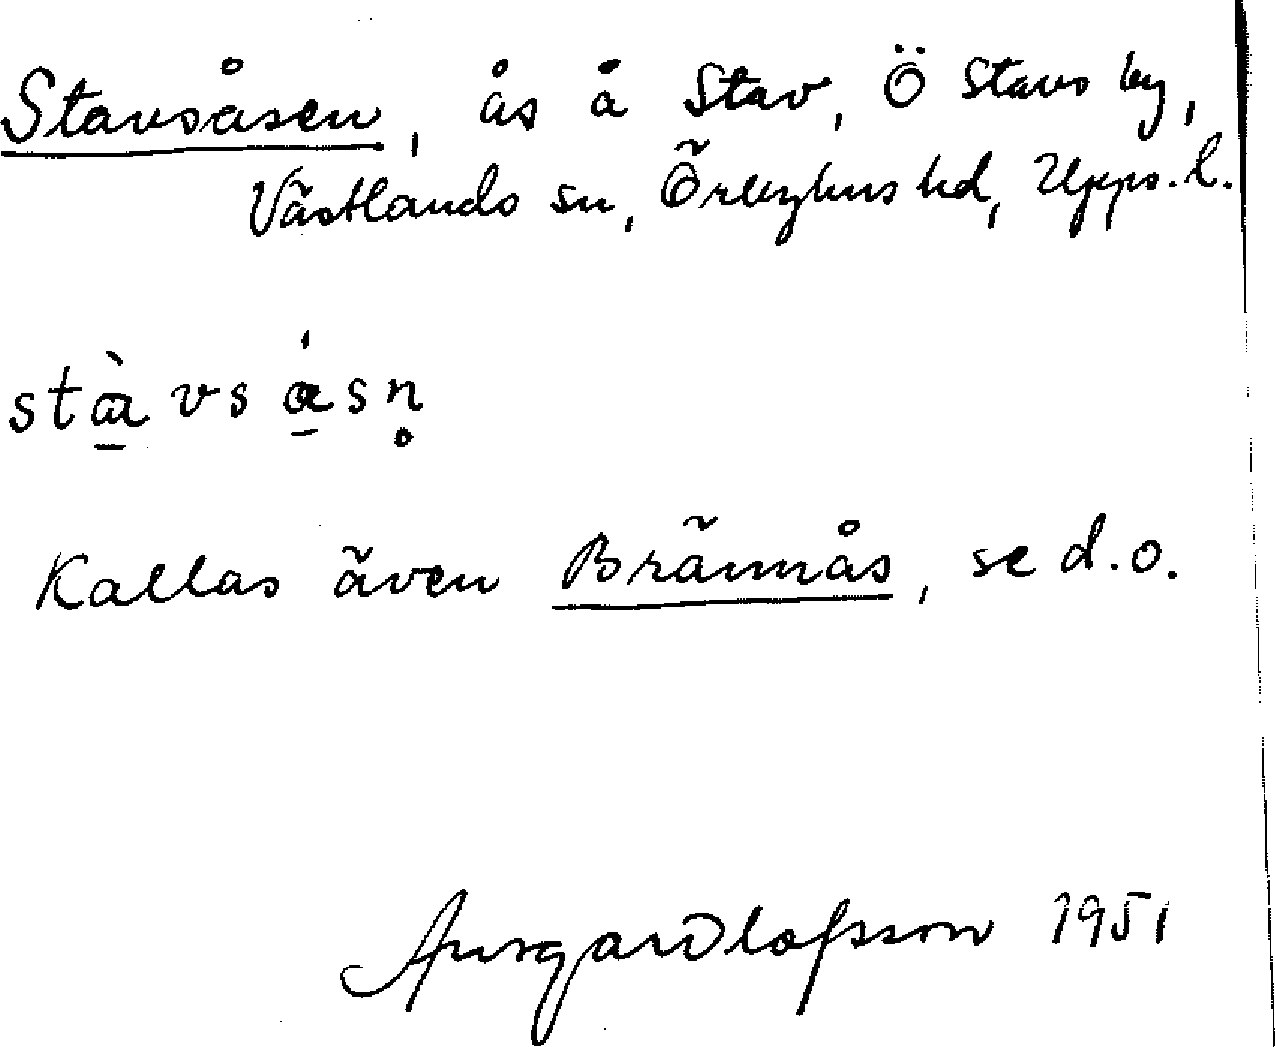 Stavsåsen, ås å Stav, Ö Stavs by,
Västlands sn, Örbyhus hd, Upps. l.
stàvsásn̥
Kallas även Brännås, se d.o.
Olofsson 1951